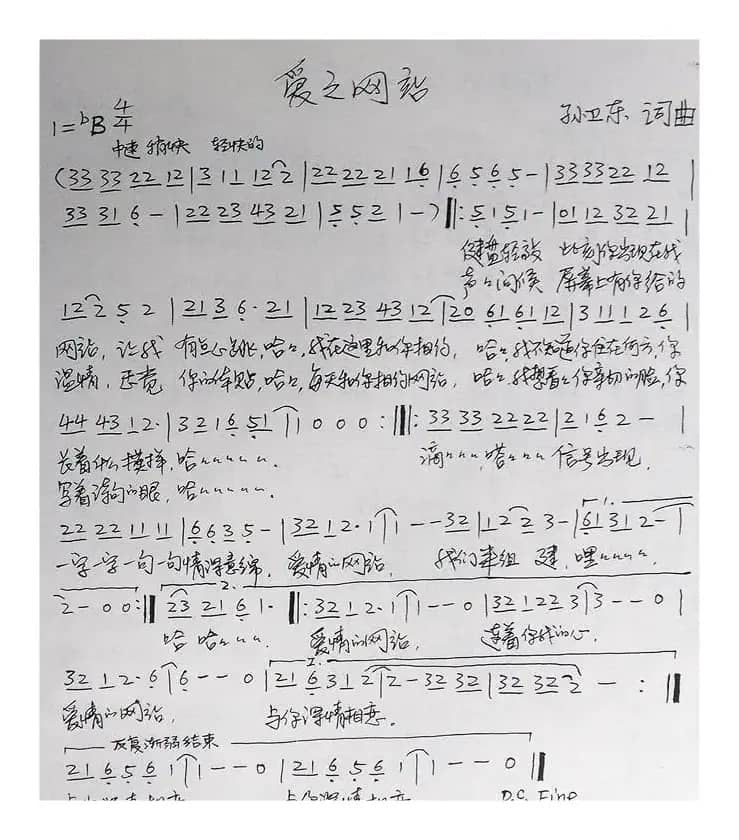 爱之网站
1=ᵇB 4/4
孙卫东 词曲
中速 稍快 轻快的
(33 33 22 12 | 3 11 12 2 | 22 22 21 16 | 6 5 6 5 - | 33 33 22 12 |
33 31 6 - | 22 23 43 21 | 5 5 2 1 -) ‖: 5 1 5 1 - | 01 12 32 21 |
键盘轻敲 此刻你出现在我
声声问候 屏幕上有你给的
12 2 5 2 | 21 3 6 · 21 | 12 23 43 12 | 20 61 61 12 | 3 11 1 2 6 |
网站, 让我 有点心跳,哈哈,我在这里和你相约, 哈哈我不知道你住在何方,你
温情, 感觉 你的体贴,哈哈,每天和你相约网站, 哈哈,我想看看你亲切的脸,你
44 43 1 2 · | 3 2 1 6 51 | 1 0 0 0 :‖: 33 33 22 22 | 2 1 6 2 - |
长着什么模样,哈
写着诗句的眼,哈
滴 嗒 信号出现,
22 22 11 11 | 6 6 3 5 - | 32 1 2 · 1 | 1 - - 32 | 1 2 2 3 - | 61 31 2 - |
一字一字一句一句情深意绵, 爱情的网站, 我们来组 建,嘿
1.
2 - 0 0 :‖ 23 21 6 1 · ‖: 32 1 2 · 1 | 1 - - 0 | 32 1 22 3 | 3 - - 0 |
2.
哈 哈 爱情的网站, 连着你我的心,
32 1 2 · 6 | 6 - - 0 | 21 6 31 2 | 2 - 32 32 | 32 32 2 - :‖
1.
爱情的网站, 与你深情相恋。
反复渐弱结束
21 6 5 6 1 | 1 - - 0 | 21 6 5 6 1 | 1 - - 0 ‖
D.C. Fine